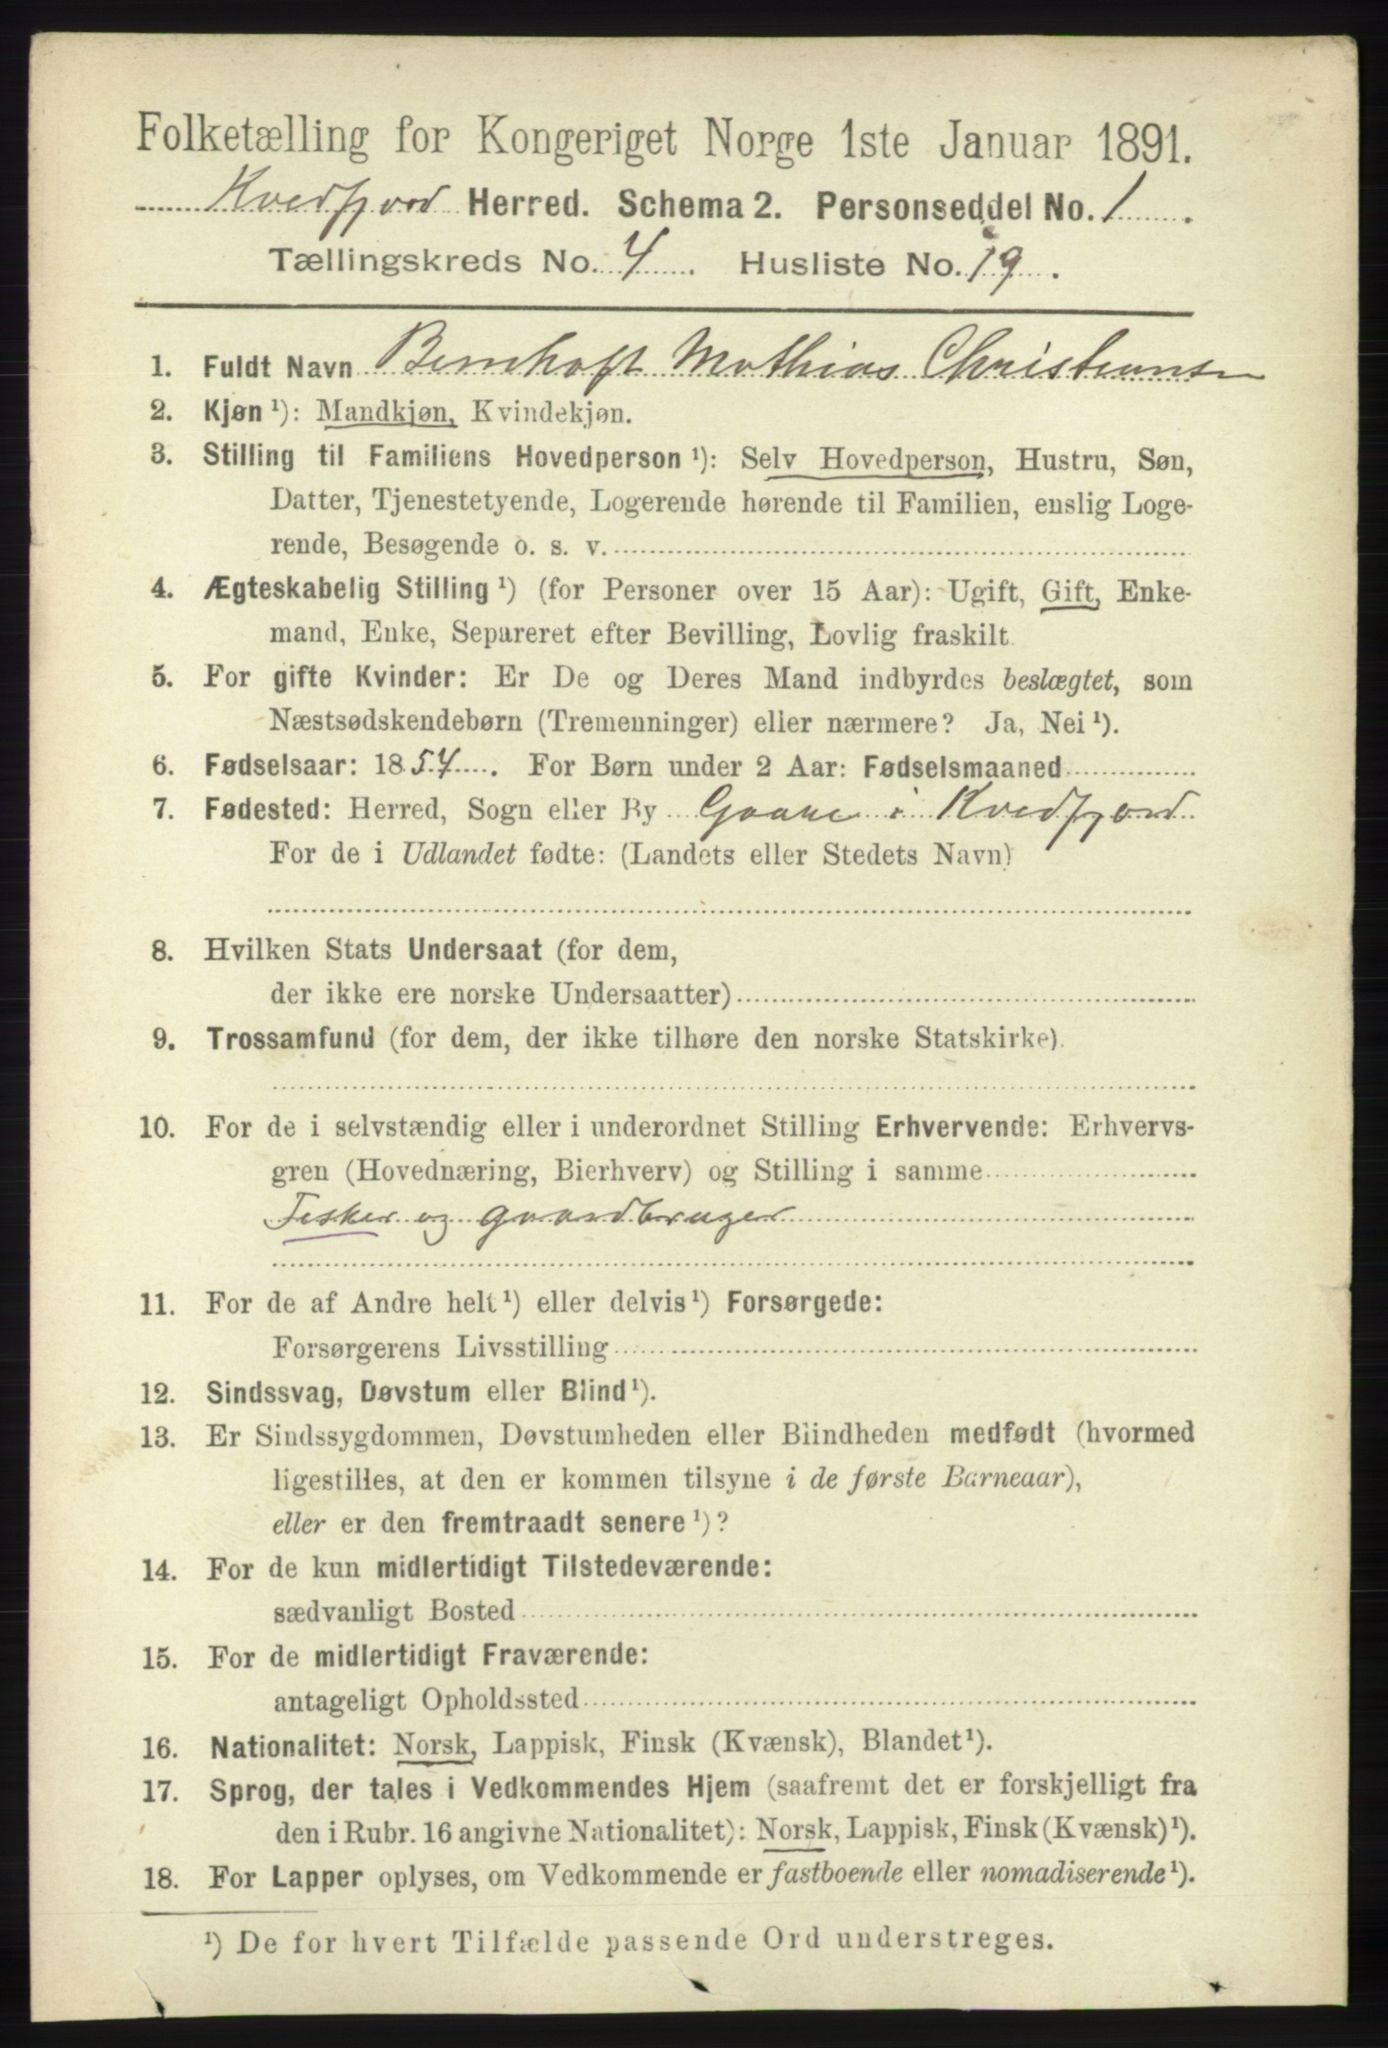 Folketælling for Kongeriget Norge 1ste Januar 1891.
Kvedfjord Herred. Schema 2. Personseddel No. 1.
Tællingskreds No. 4. Husliste No. 19.
1. Fuldt Navn Bernhoft Mathias Christiansen
2. Kjøn ¹): Mandkjøn, Kvindekjøn.
3. Stilling til Familiens Hovedperson ¹): Selv Hovedperson, Hustru, Søn,
Datter, Tjenestetyende, Logerende hørende til Familien, enslig Loge-
rende, Besøgende o. s. v.
4. Ægteskabelig Stilling ¹) (for Personer over 15 Aar): Ugift, Gift, Enke-
mand, Enke, Separeret efter Bevilling, Lovlig fraskilt
5. For gifte Kvinder: Er De og Deres Mand indbyrdes beslægtet, som
Næstsødskendebørn (Tremenninger) eller nærmere? Ja, Nei ¹).
6. Fødselsaar: 1857. For Børn under 2 Aar: Fødselsmaaned
7. Fødested: Herred, Sogn eller By Gaare i Kvedfjord
For de i Udlandet fødte: (Landets eller Stedets Navn)
8. Hvilken Stats Undersaat (for dem,
der ikke ere norske Undersaatter)
9. Trossamfund (for dem, der ikke tilhøre den norske Statskirke).
10. For de i selvstændig eller i underordnet Stilling Erhvervende: Erhvervs-
gren (Hovednæring, Bierhverv) og Stilling i samme
Fisker og gaardbruger
11. For de af Andre helt ¹) eller delvis ¹) Forsørgede:
Forsørgerens Livsstilling
12. Sindssvag, Døvstum eller Blind ¹).
13. Er Sindssygdommen, Døvstumheden eller Blindheden medfødt (hvormed
ligestilles, at den er kommen tilsyne i de første Barneaar),
eller er den fremtraadt senere ¹)?
14. For de kun midlertidigt Tilstedeværende:
sædvanligt Bosted
15. For de midlertidigt Fraværende:
antageligt Opholdssted
16. Nationalitet: Norsk, Lappisk, Finsk (Kvænsk), Blandet ¹).
17. Sprog, der tales i Vedkommendes Hjem (saafremt det er forskjelligt fra
den i Rubr. 16 angivne Nationalitet): Norsk, Lappisk, Finsk (Kvænsk) ¹).
18. For Lapper oplyses, om Vedkommende er fastboende eller nomadiserende ¹).
¹) De for hvert Tilfælde passende Ord understreges.